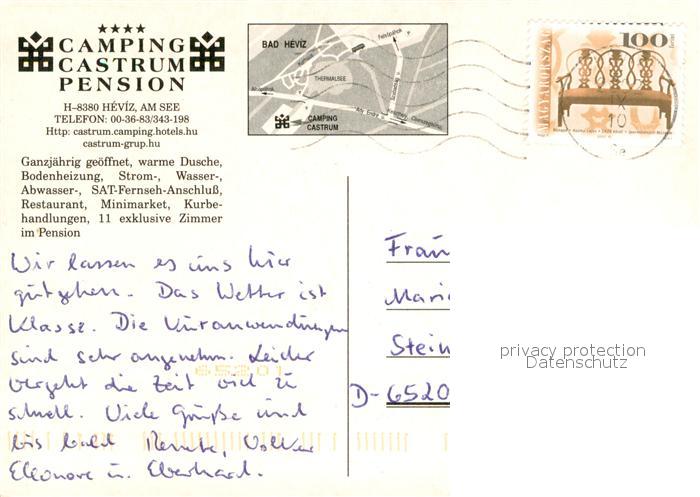 CAMPING
CASTRUM
PENSION
H–8380 HÉVÍZ, AM SEE
TELEFON: 00-36-83/343-198
Http: castrum.camping.hotels.hu
castrum-grup.hu
Ganzjährig geöffnet, warme Dusche,
Bodenheizung, Strom-, Wasser-,
Abwasser-, SAT-Fernseh-Anschluß,
Restaurant, Minimarket, Kurbe-
handlungen, 11 exklusive Zimmer
im Pension
BAD HÉVÍZ
THERMALSEE
CAMPING
CASTRUM
MAGYARORSZÁG
100
IX
10
Wir lassen es uns hier
gutgehen. Das Wetter ist
Klasse. Die Kuranwendungen
sind sehr angenehm. Leider
vergeht die Zeit viel zu
schnell. Viele Grüße und
bis bald Renate, Volker
Eleonore u. Eberhard.
65201
Frau
Mari
Stein
D-6520
privacy protection
Datenschutz